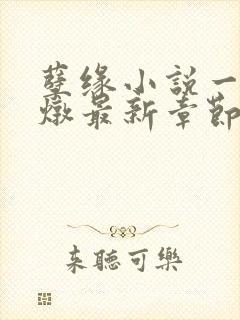 孽缘小説一
燉最新章節
来聽可樂